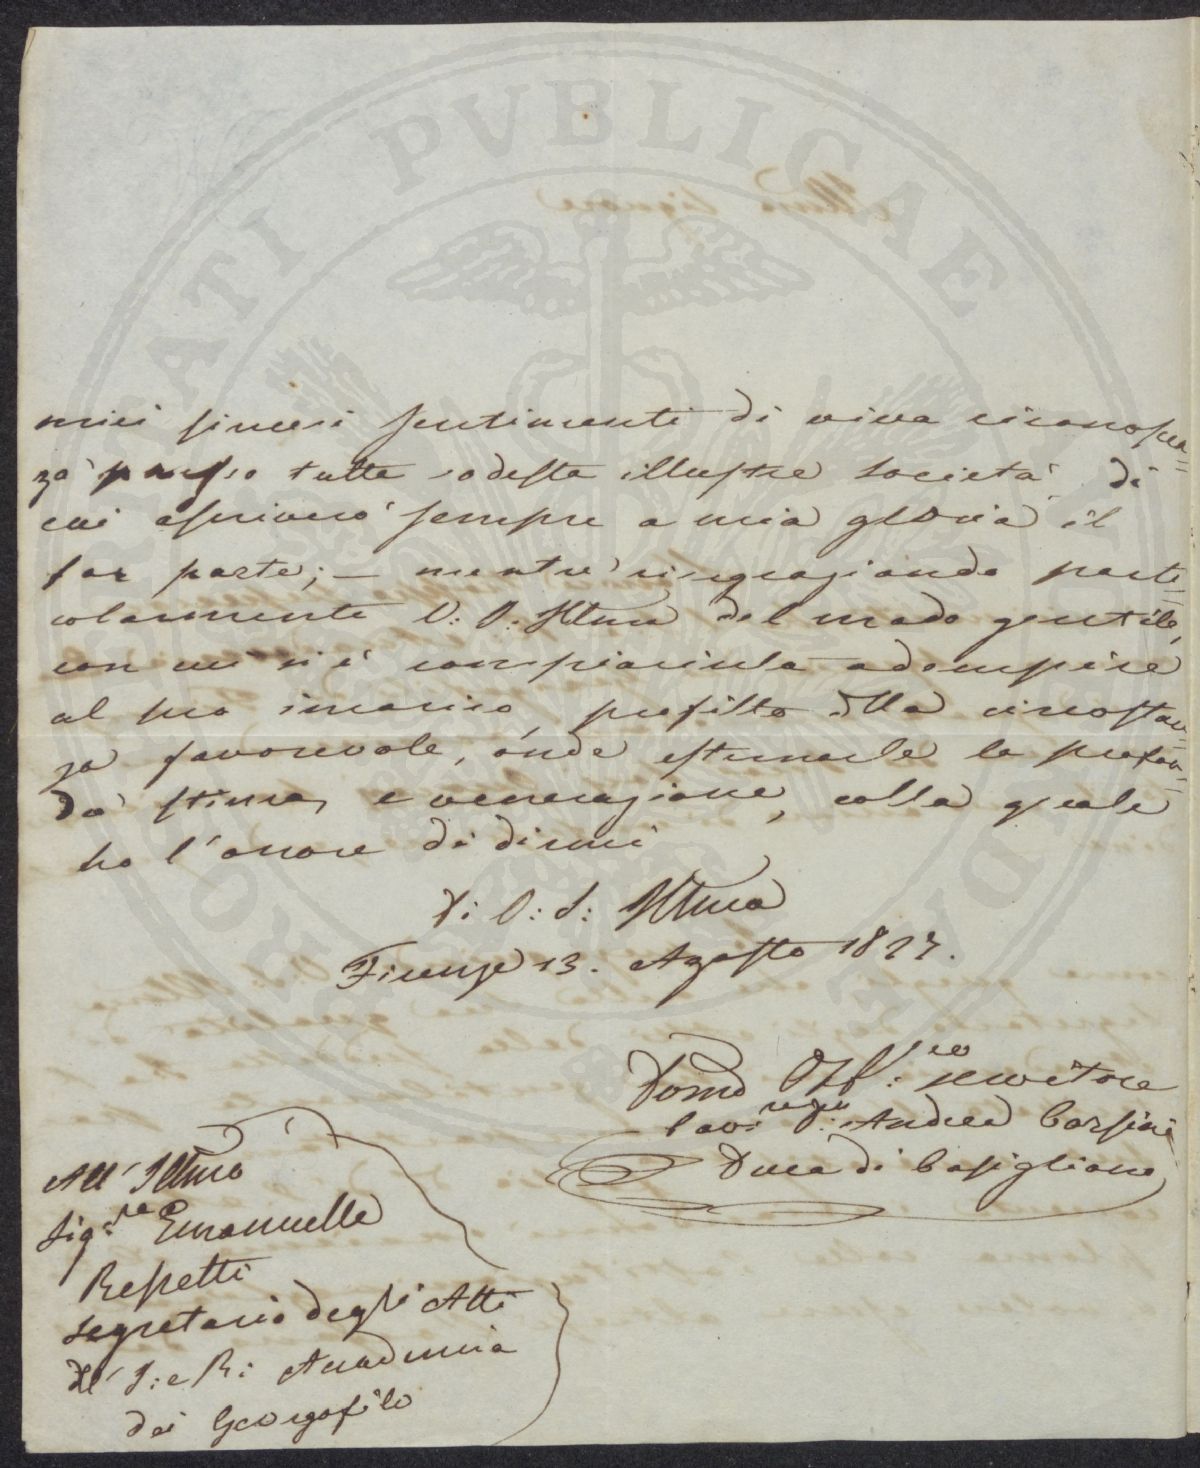 miei sinceri sentimenti di viva riconoscen=
za presso tutta codesta illustre Società, di
cui ascriverò sempre a mia gloria il
far parte; — mentre ringraziando parti=
colarmente V: S. Illma del modo gentile,
con cui si è compiaciuta adempire
al suo incarico, profitto della circostan=
za favorevole, onde esternarle la profon=
da stima, e venerazione, colla quale
ho l'onore di dirmi
Di V: S: Illma
Firenze 13. Agosto 1827.
Devmo Obb: servitore
Andrea Corsini
Duca di Casigliano
All' Illmo
Sig:re Emanuelle
Repetti
Segretario degli Atti
dell' I: e R: Accademia
dei Georgofili